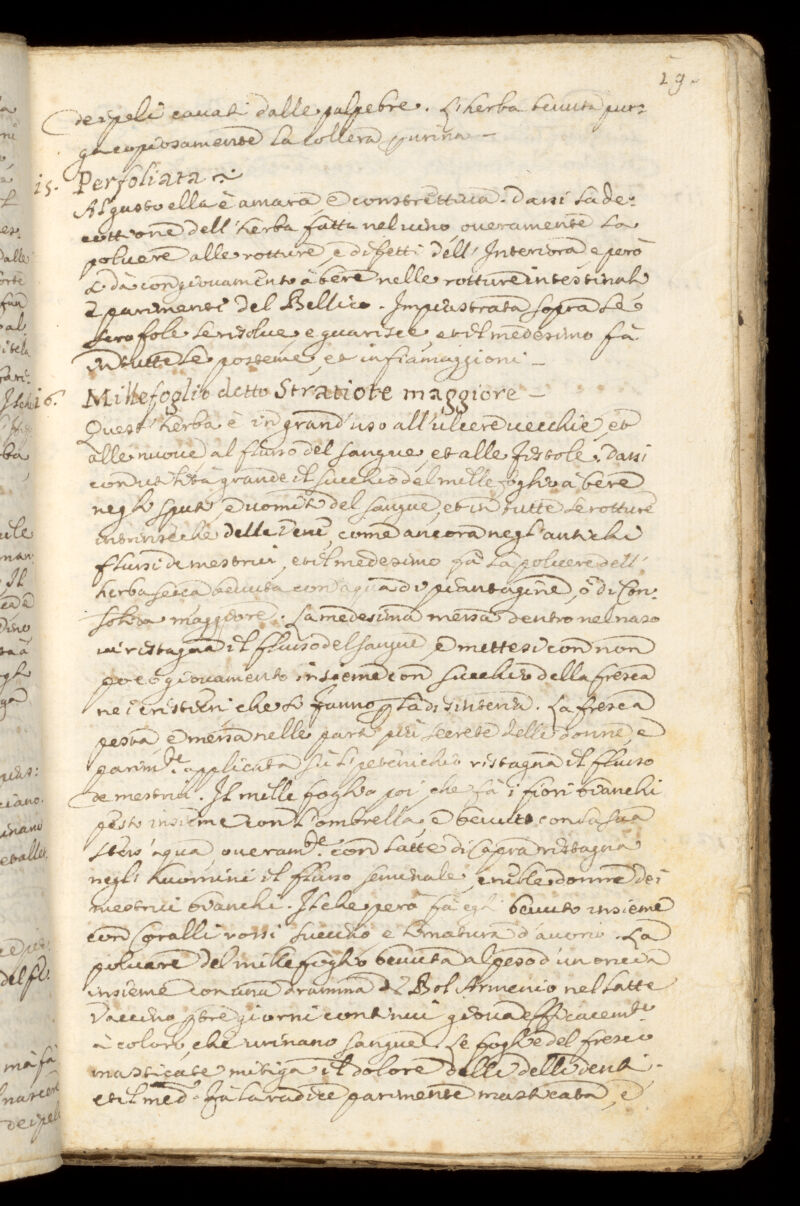 29.
de i peli cauati dalle palpebre. L'herba beuuta pur=
ga copiosamente la collera p urina —
15. Perfoliata
Al gusto ella è amara e constrettiua. Dassi la de:
cottione dell'herba fatta nel uino oueramente la
poluere alle rotture e difetti dell'Interiora e però
si dà con giouamento à bere nelle rotture intestinali
e parimenti del Bellico. Impiastrata sopra le
scrofole le risolue e guarisce, et il medesimo fà
in tutte le posteme, et infiamaggioni —
16. Millefoglio detto Stratiote maggiore —
Quest'herba è in grand'uso all'ulcere uecchie, et
alle nuoue al flusso del sangue, et alle fistole. Dassi
con utilità grande il succhio del mille foglio à bere
negli sputi, e uomiti del sangue, et in tutte le rotture
intrinseche delle uene, come ancora negl'antichi
flussi de mestrui, et il medesimo fà la poluere dell'
herba secca beuuta con aqua di piantagine, ò di Con:
solida maggiore. La medesima messa dentro nel naso
ui ristagna il flusso del sangue e mettesi con non
poco giouamento insieme con succhio della fresca
ne i cristieri che si fanno p la disinteria. La fresca
pesta, e messa nelle parti più secrete delle donne, e
parim.te applicata sù'l petenichio ristagna il flusso
de mestrui. Il mille foglio poi che fà i fiori bianchi
pesto insieme con l'ombrella, e beuuto con la sua
stess'aqua, oueram.te con latte di Capra ristagna
negli huomini il flusso seminale, e nelle donne dei
mestrui bianchi. Il che però fà egli beuuto insieme
con Coralli rossi succino e limatura d'auorio. La
poluere del mille foglio beuuta al peso d'un oncia
insieme con una dramma di Bol Armenio nel latte
Vaccino p tre giorni continui gioua efficacem.te
à coloro che urinano sangue. Le foglie del fresco
masticate mitiga il dolore delli delli denti.
et il med.o fà la radice parimente masticata, è